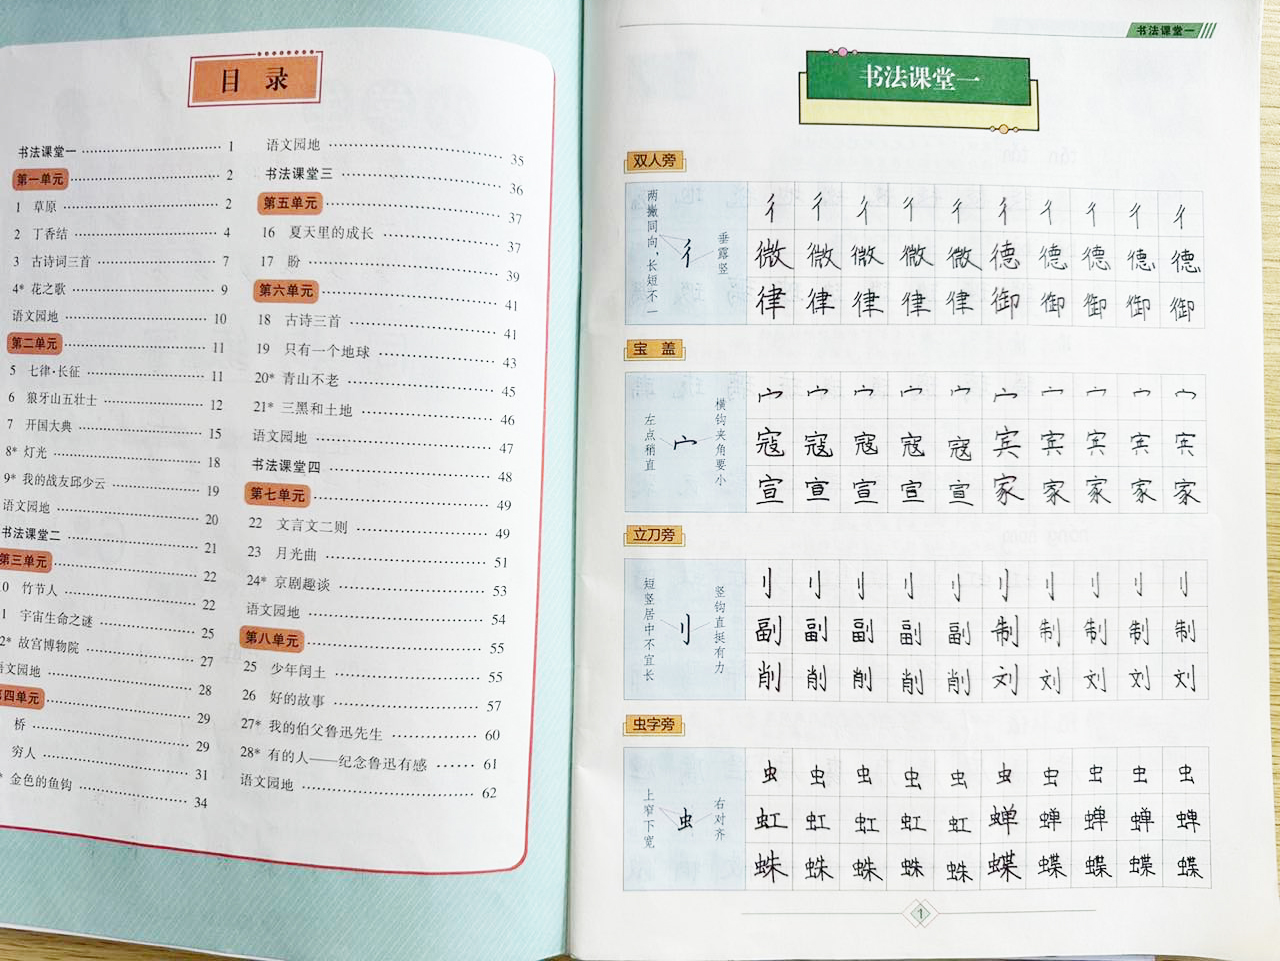 目 录
书法课堂一 1
第一单元 2
1 草原 2
2 丁香结 4
3 古诗词三首 7
4* 花之歌 9
语文园地 10
第二单元 11
5 七律·长征 11
6 狼牙山五壮士 12
7 开国大典 15
8* 灯光 18
9* 我的战友邱少云 19
语文园地 20
书法课堂二 21
第三单元 22
0 竹节人 22
1 宇宙生命之谜 25
2* 故宫博物院 27
语文园地 28
第四单元 29
桥 29
穷人 31
* 金色的鱼钩 34
语文园地 35
书法课堂三 36
第五单元 37
16 夏天里的成长 37
17 盼 39
第六单元 41
18 古诗三首 41
19 只有一个地球 43
20* 青山不老 45
21* 三黑和土地 46
语文园地 47
书法课堂四 48
第七单元 49
22 文言文二则 49
23 月光曲 51
24* 京剧趣谈 53
语文园地 54
第八单元 55
25 少年闰土 55
26 好的故事 57
27* 我的伯父鲁迅先生 60
28* 有的人——纪念鲁迅有感 61
语文园地 62
书法课堂一
书法课堂一
双人旁
两撇同向，长短不一
彳
垂露竖
彳 彳 彳 彳 彳 彳 彳 彳 彳 彳
微 微 微 微 微 德 德 德 德 德
律 律 律 律 律 御 御 御 御 御
宝 盖
左点稍直
宀
横钩夹角要小
宀 宀 宀 宀 宀 宀 宀 宀 宀 宀
寇 寇 寇 寇 寇 宾 宾 宾 宾 宾
宣 宣 宣 宣 宣 家 家 家 家 家
立刀旁
短竖居中不宜长
刂
竖钩直挺有力
刂 刂 刂 刂 刂 刂 刂 刂 刂 刂
副 副 副 副 副 制 制 制 制 制
削 削 削 削 削 刘 刘 刘 刘 刘
虫字旁
上窄下宽
虫
右对齐
虫 虫 虫 虫 虫 虫 虫 虫 虫 虫
虹 虹 虹 虹 虹 蝉 蝉 蝉 蝉 蝉
蛛 蛛 蛛 蛛 蛛 蝶 蝶 蝶 蝶 蝶
1